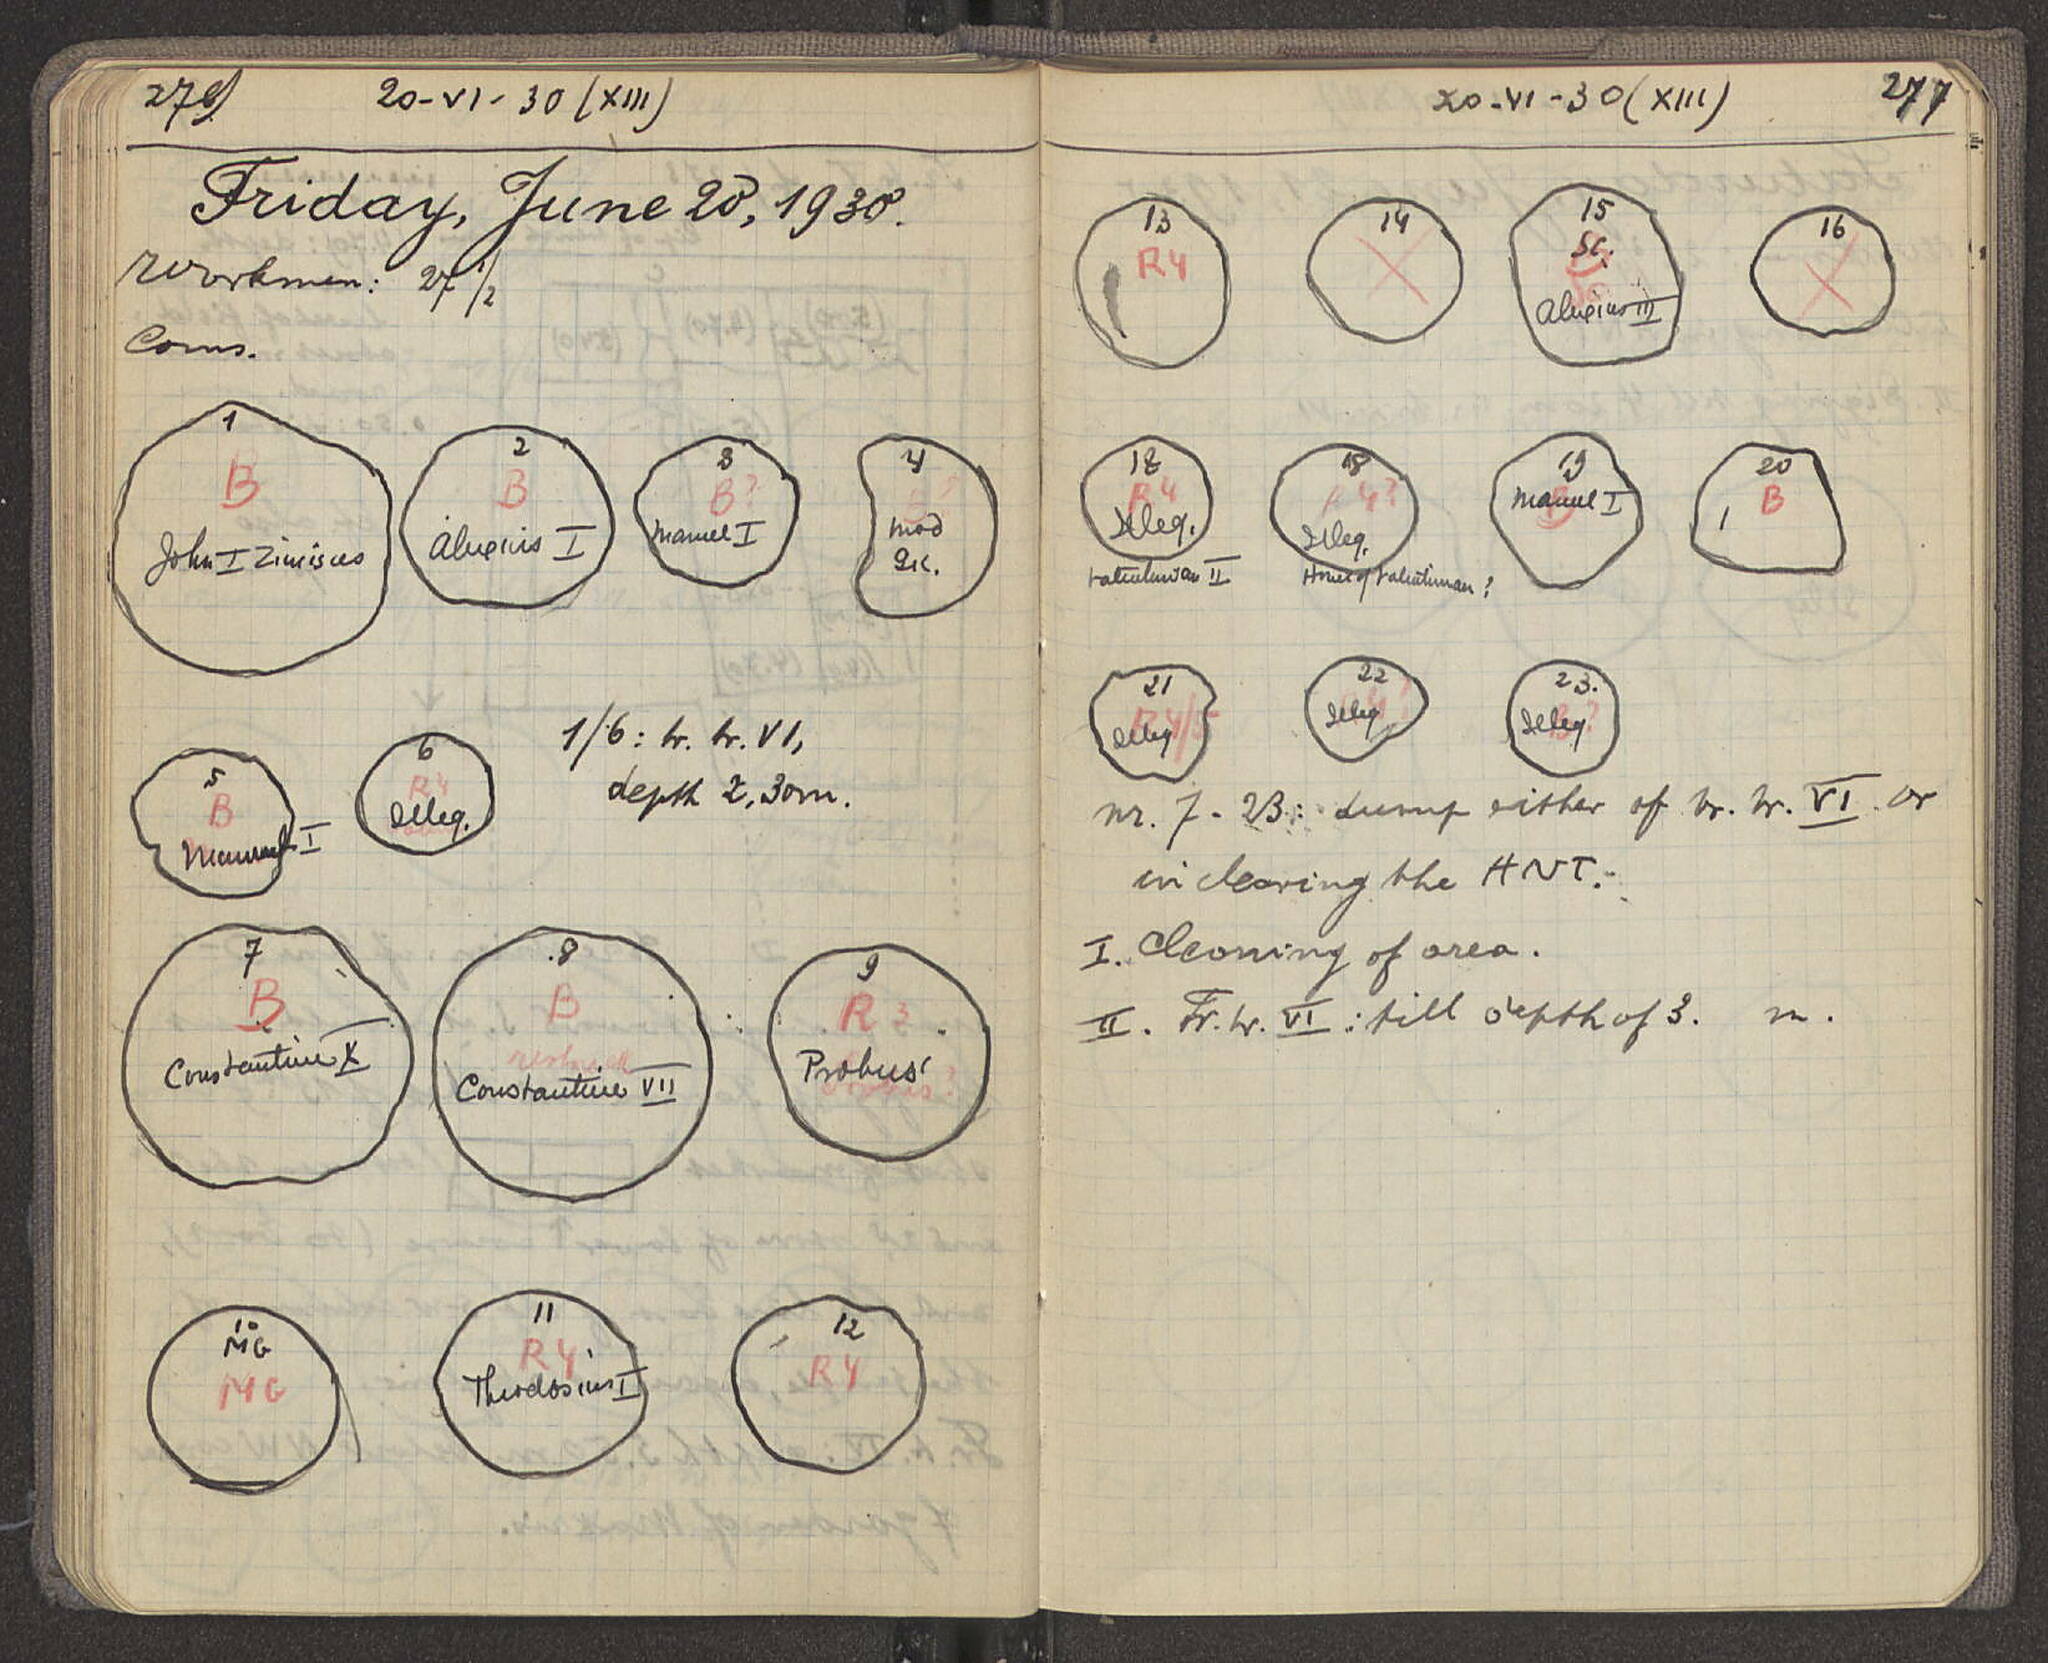 276 20-VI-30 (XIII)
Friday, June 20, 1930.
Workmen: 27 1/2
Coins.
1
B
John I Zimisces
2
B
Alexius I
3
B?
Manuel I
4
mod
Sic.
5
B
Manuel I
6
R4
Illeg.
1/6: tr. tr. VI,
depth 2,30m.
7
B
Constantine X
8
B
restruck
Constantine VII
9
R3
Probus
10
MG
MG
11
R4
Theodosius I
12
R4
20-VI-30 (XIII) 277
13
R4
14
15
Sc.
Alexius III
16
18
R4
Illeg.
Valentinian II
18
R4?
Illeg.
Honor of Valentinian?
19
B
Manuel I
20
B
21
R4/5
Illeg
22
Illeg
23.
B?
Illeg
nr. 7-23: dump either of tr. tr. VI or
in clearing the HNT.
I. Cleaning of area.
II. Tr. tr. VI: till depth of 3. m.